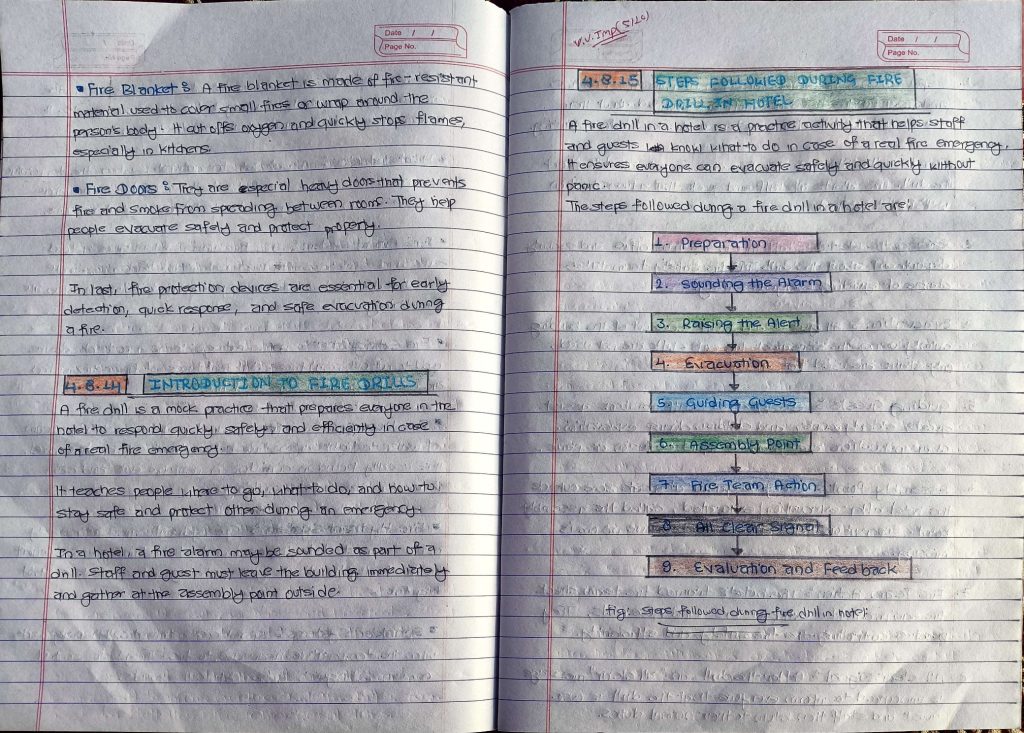 Date / /
Page No.
• Fire Blanket : A fire blanket is made of fire-resistant
material used to cover small fires or wrap around the
person's body. It cut offs oxygen and quickly stops flames,
especially in kitchens.
• Fire Doors : They are special heavy doors that prevents
fire and smoke from spreading between rooms. They help
people evacuate safely and protect property.
In last, fire protection devices are essential for early
detection, quick response, and safe evacuation during
a fire.
4.8.14 INTRODUCTION TO FIRE DRILLS
A fire drill is a mock practice that prepares everyone in the
hotel to respond quickly, safely, and efficiently in case
of a real fire emergency.
It teaches people where to go, what to do, and how to
stay safe and protect other during an emergency.
In a hotel, a fire alarm may be sounded as part of a
drill. Staff and guest must leave the building immediately
and gather at the assembly point outside.
V.V.Imp(5/10)
Date / /
Page No.
4.8.15 STEPS FOLLOWED DURING FIRE
DRILL IN HOTEL
A fire drill in a hotel is a practice activity that helps staff
and guests know what to do in case of a real fire emergency.
It ensures everyone can evacuate safely and quickly without
panic.
The steps followed during a fire drill in a hotel are:
1. Preparation
2. Sounding the Alarm
3. Raising the Alert
4. Evacuation
5. Guiding Guests
6. Assembly Point
7. Fire Team Action
8. All Clear Signal
9. Evaluation and Feedback
fig: Steps followed during fire drill in hotel.